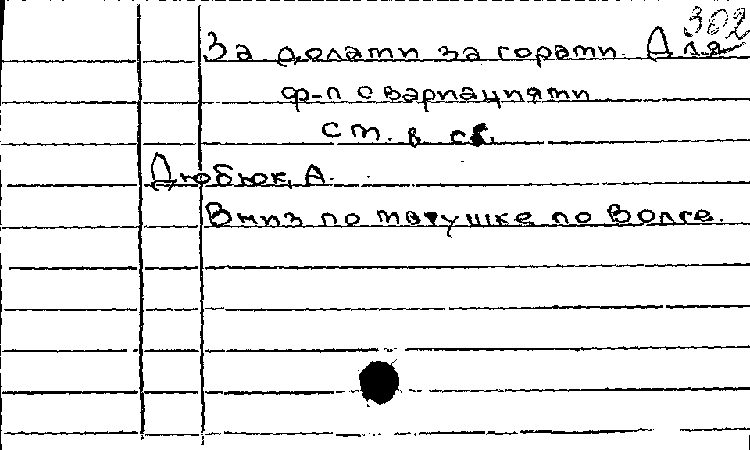 302
За долами за горами. Для
ф-п с вариациями
см. в сб.
Дюбюк, А.
Вниз по матушке по Волге.